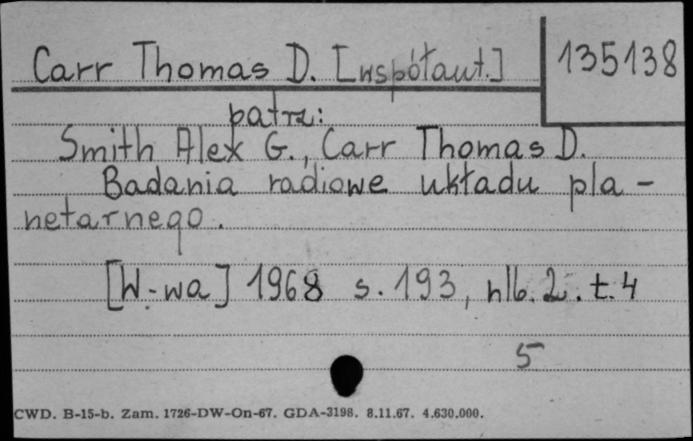 Carr Thomas D. [współaut.] 135138
patrz:
Smith Alex G., Carr Thomas D.
Badania radiowe układu pla-
netarnego.
[W-wa] 1968 s. 193, nlb. 2. t. 4
5
CWD. B-15-b. Zam. 1726-DW-On-67. GDA-3198. 8.11.67. 4.630.000.